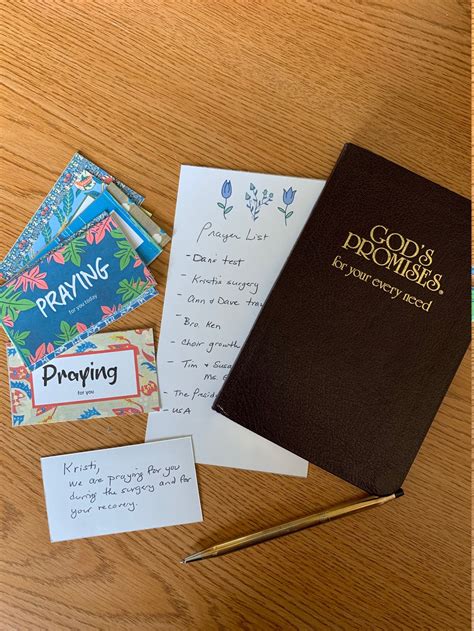 GOD'S
PROMISES®
for your every need
Prayer List
- Dans' test
- Kristi's surgery
- Ann & Dave
- Bro. Ken
- Choir growth
- Tim & Susa
Ms.
- The Presid
- USA
PRAYING
for you today
Praying
for you
Kristi,
we are praying for you
during the surgery and for
your recovery.